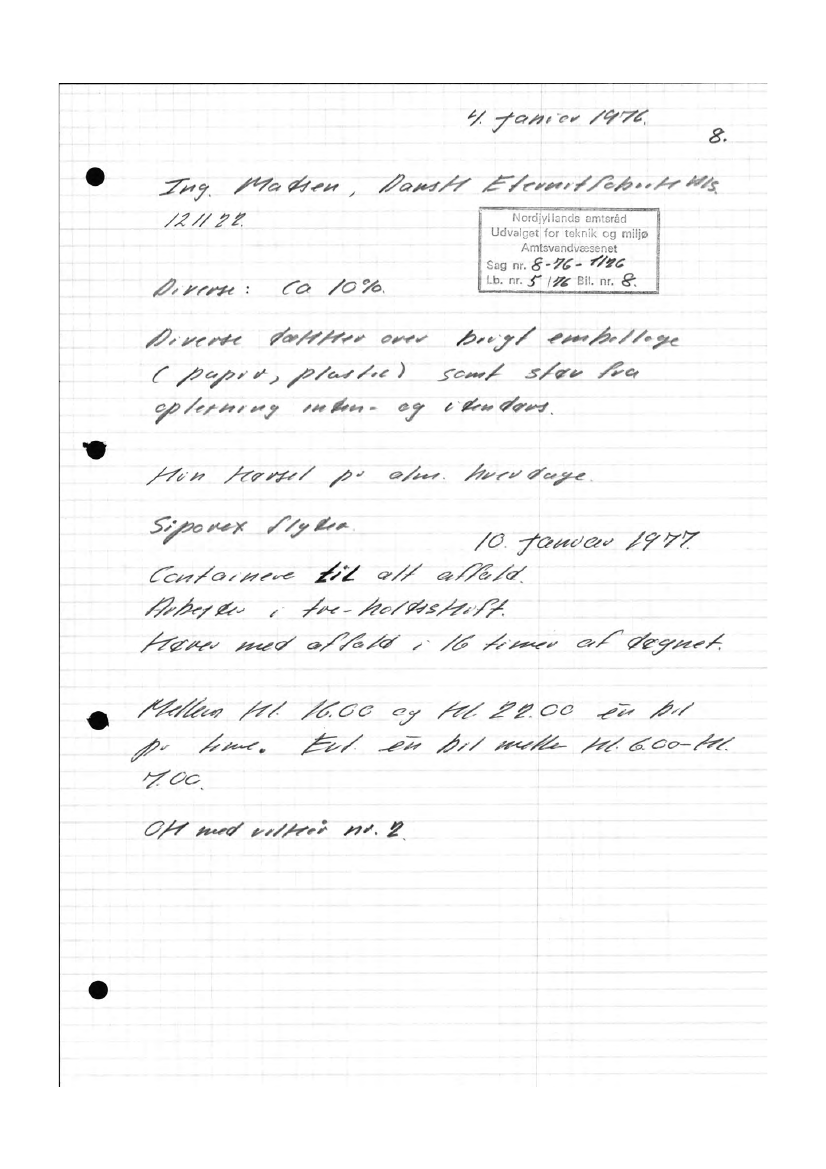 4. januar 1976.
8.
Ing. Madsen, Dansk Eternitfabrik A/S
12 11 22.
Nordjyllands amtsråd
Udvalget for teknik og miljø
Amtsvandvæsenet
Sag nr. 8-76-1/76
Lb. nr. 5 /76 Bil. nr. 8.
Diverse: Ca 10%.
Diverse dækker over brugt emballage
(papir, plastic) samt støv fra
opfejning inden- og udendørs.
Kun kørsel på alm. hverdage.
Siporex flyder.
10. januar 1977.
Containere til alt affald.
Arbejder i tre-holdsskift.
Kører med affald i 16 timer af døgnet.
Mellem kl. 16.00 og kl. 22.00 én bil
pr time. Evt. én bil mellem kl. 6.00-kl.
7.00.
OK med vilkår nr. 2.